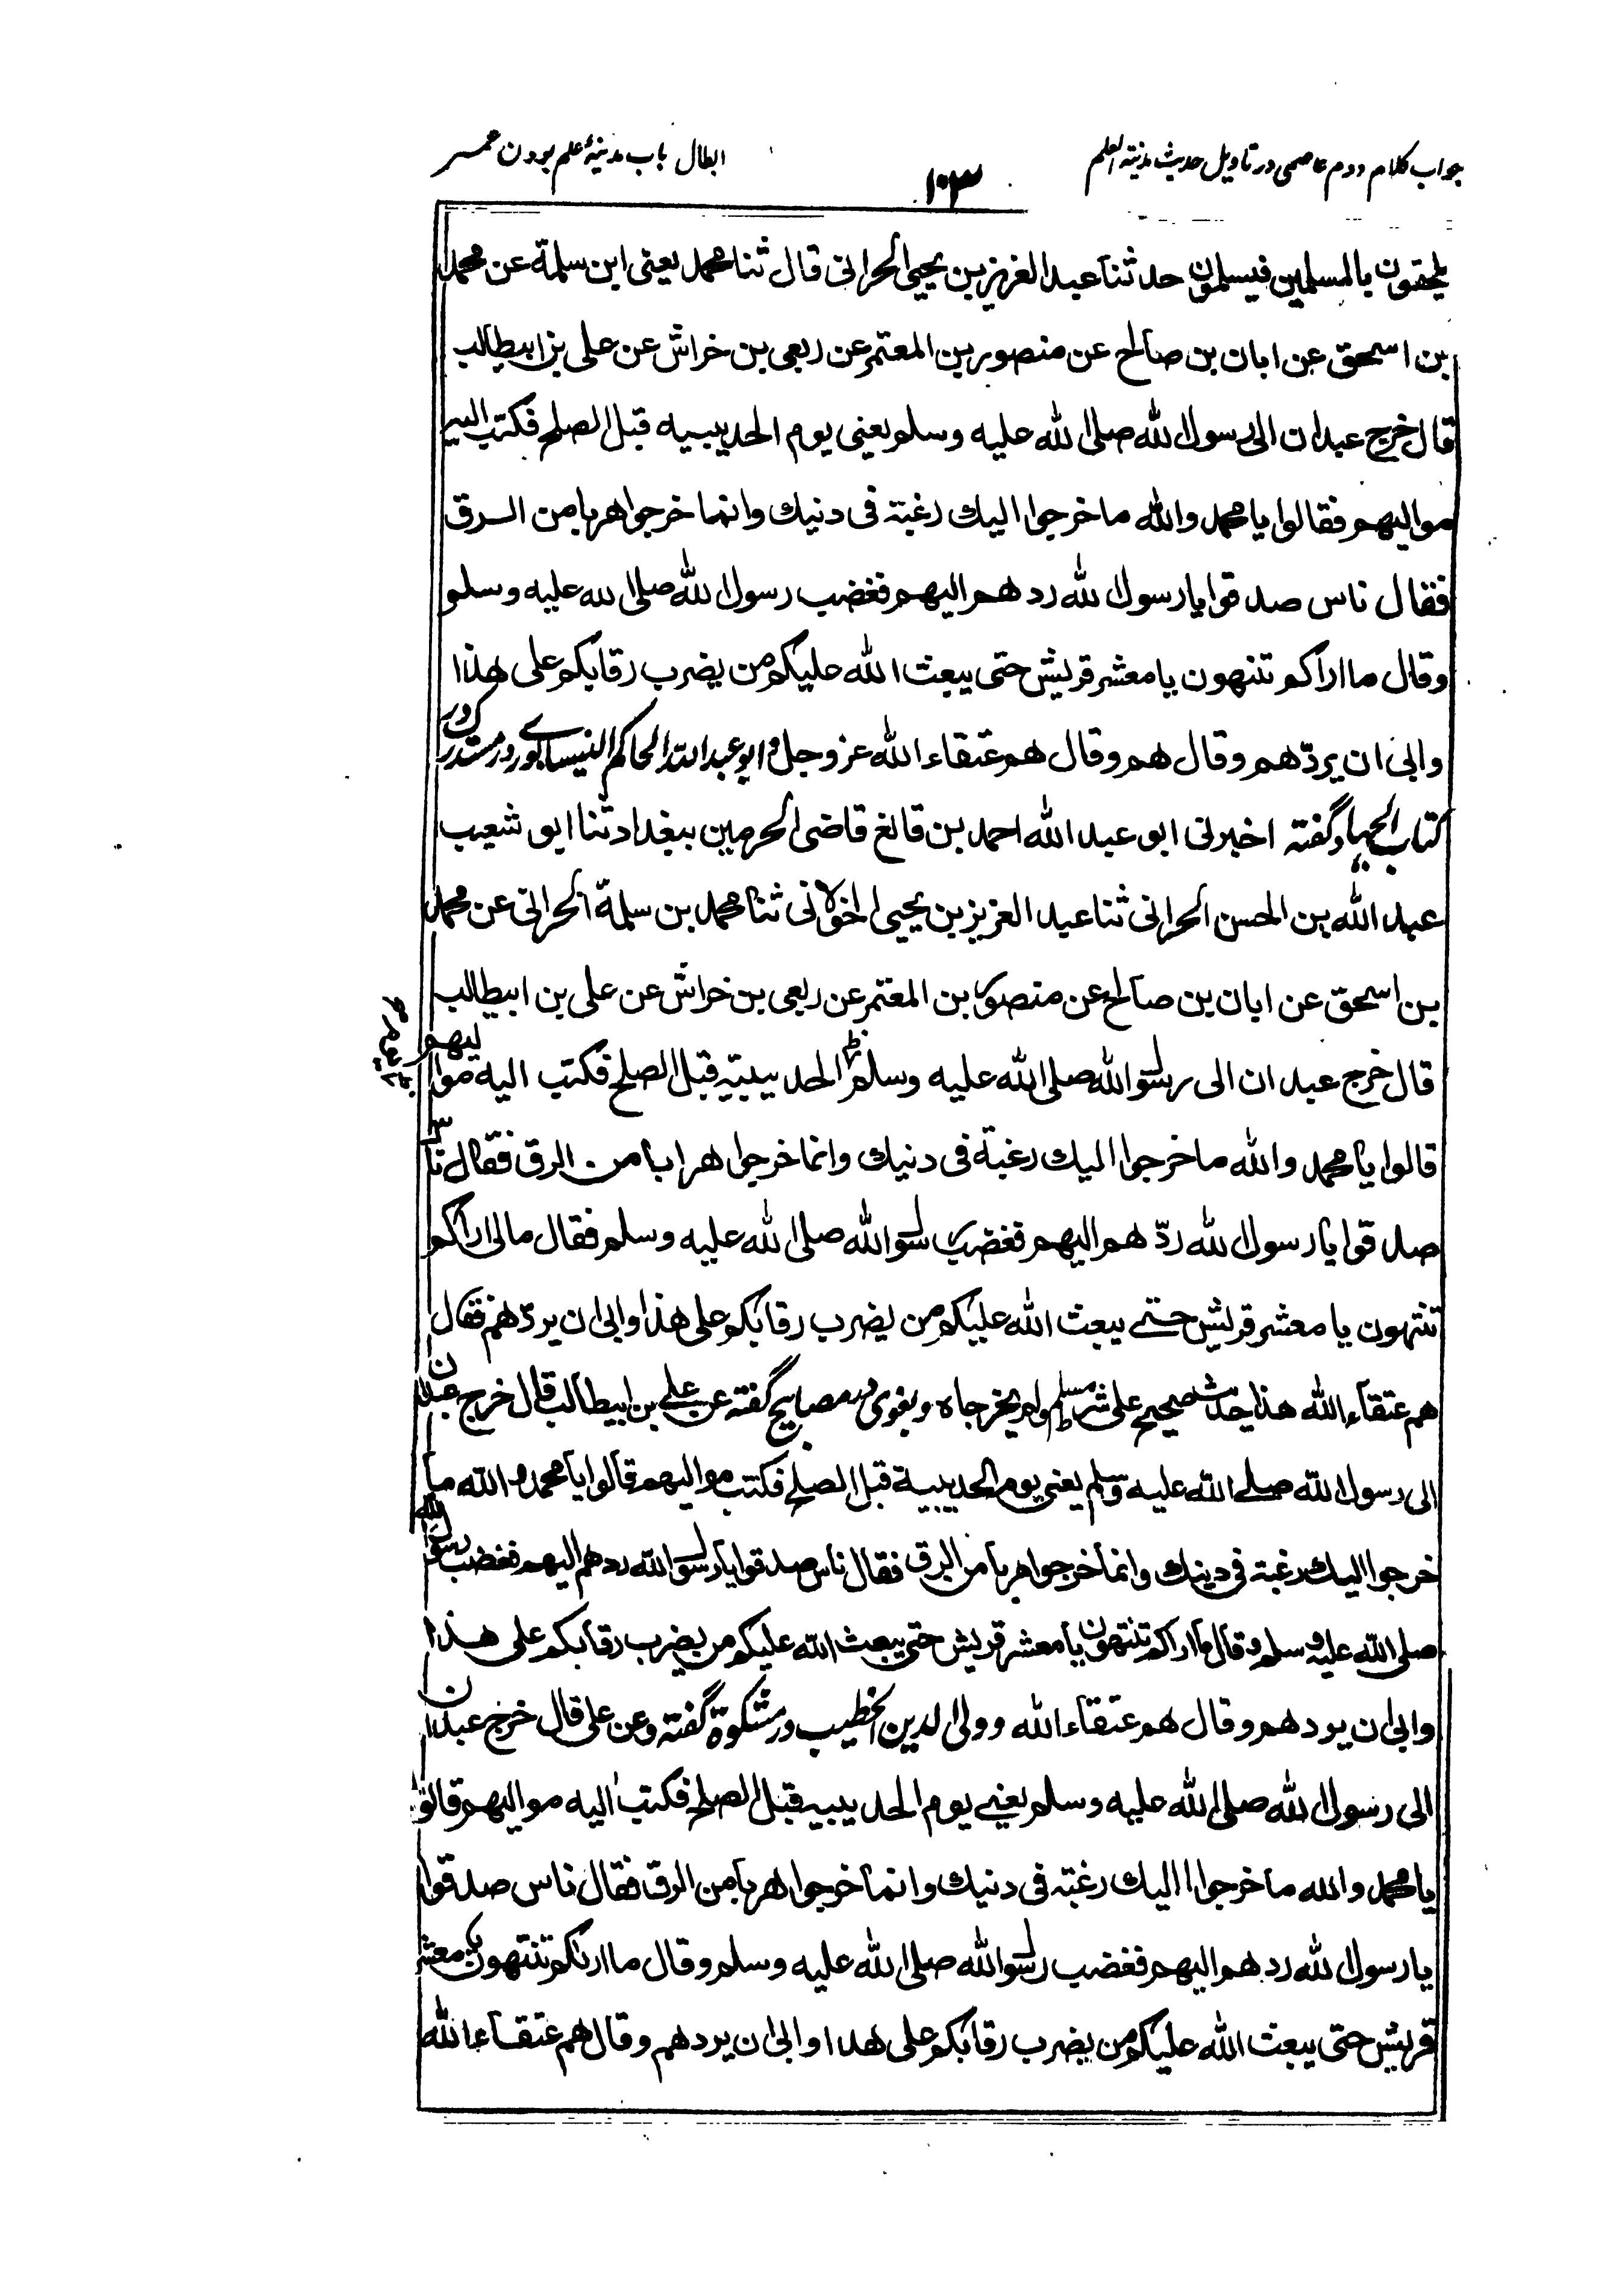 جواب کلام دوم عاصمی در تاویل حدیث مدینة العلم
۱۰۳
ابطال باب مدینهٔ علم بودن عمر
یلحقون بالمسلمین فیسلمون حدثنا عبد العزیز بن یحیی الحرانی قال ثنا محمد یعنی ابن سلمة عن محمد
بن اسحق عن ابان بن صالح عن منصور بن المعتمر عن ربعی بن خراش عن علی بن ابیطالب
قال خرج عبدان الی رسول الله صلی الله علیه وسلم یعنی یوم الحدیبیه قبل الصلح فکتب الیه
موالیهم فقالوا یا محمد والله ما خرجوا الیك رغبة فی دنیك وانما خرجوا هربا من الرق
فقال ناس صدقوا یا رسول الله ردهم الیهم فغضب رسول الله صلی الله علیه وسلم
وقال ما اراکم تنهون یا معشر قریش حتی یبعث الله علیکم من یضرب رقابکم علی هذا
وابی ان یردّهم وقال هم وقال هم عتقاء الله عز وجل و ابو عبد الله الحاکم النیسابوری در مستدرک در
کتاب الجهاد گفته اخبرنی ابو عبد الله احمد بن قانع قاضی الحرمین ببغداد ثنا ابو شعیب
عبد الله بن الحسن الحرانی ثنا عبد العزیز بن یحیی الخولانی ثنا محمد بن سلمة الحرانی عن محمد
بن اسحق عن ابان بن صالح عن منصور بن المعتمر عن ربعی بن خراش عن علی بن ابیطالب
قال خرج عبدان الی رسول الله صلی الله علیه وسلم الحدیبیّة قبل الصلح فکتب الیه موالیهم
قالوا یا محمد والله ما خرجوا الیك رغبة فی دنیك وانما خرجوا هرابا من الرق فقال ناس
صدقوا یا رسول الله ردّهم الیهم فغضب رسول الله صلی الله علیه وسلم فقال مالی اراکم
تنتهون یا معشر قریش حتے یبعث الله علیکم من یضرب رقابکم علی هذا وابی ان یردّهم فقال
هم عتقاء الله هذا حدیث صحیح علی شرط مسلم ولم یخرجاه و بغوی در مصابیح گفته عن علے بن ابیطالب قال خرج عبدان
الی رسول الله صلے الله علیه وسلم یعنی یوم الحدیبیة قبل الصلح فکتب موالیهم قالوا یا محمد والله ما
خرجوا الیك رغبة فی دینك وانما خرجوا هربا من الرق فقال ناس صدقوا یا رسول الله ردهم الیهم فغضب رسول الله
صلی الله علیه وسلم وقال ما اراکم تنتهون یا معشر قریش حتی یبعث الله علیکم من یضرب رقابکم علی هذا
وابی ان یردهم وقال هم عتقاء الله و ولی الدین الخطیب در مشکوة گفته وعن علی قال خرج عبدان
الی رسول الله صلی الله علیه وسلم یعنے یوم الحدیبیه قبل الصلح فکتب الیه موالیهم قالوا
یا محمد والله ما خرجوا الیك رغبته فی دنیك وانما خرجوا هربا من الرق فقال ناس صدقوا
یا رسول الله ردهم الیهم فغضب رسول الله صلی الله علیه وسلم وقال ما ارىکم تنتهون یا معشر
قریش حتی یبعث الله علیکم من یضرب رقابکم علی هذا وابی ان یردهم وقال هم عتقاء الله